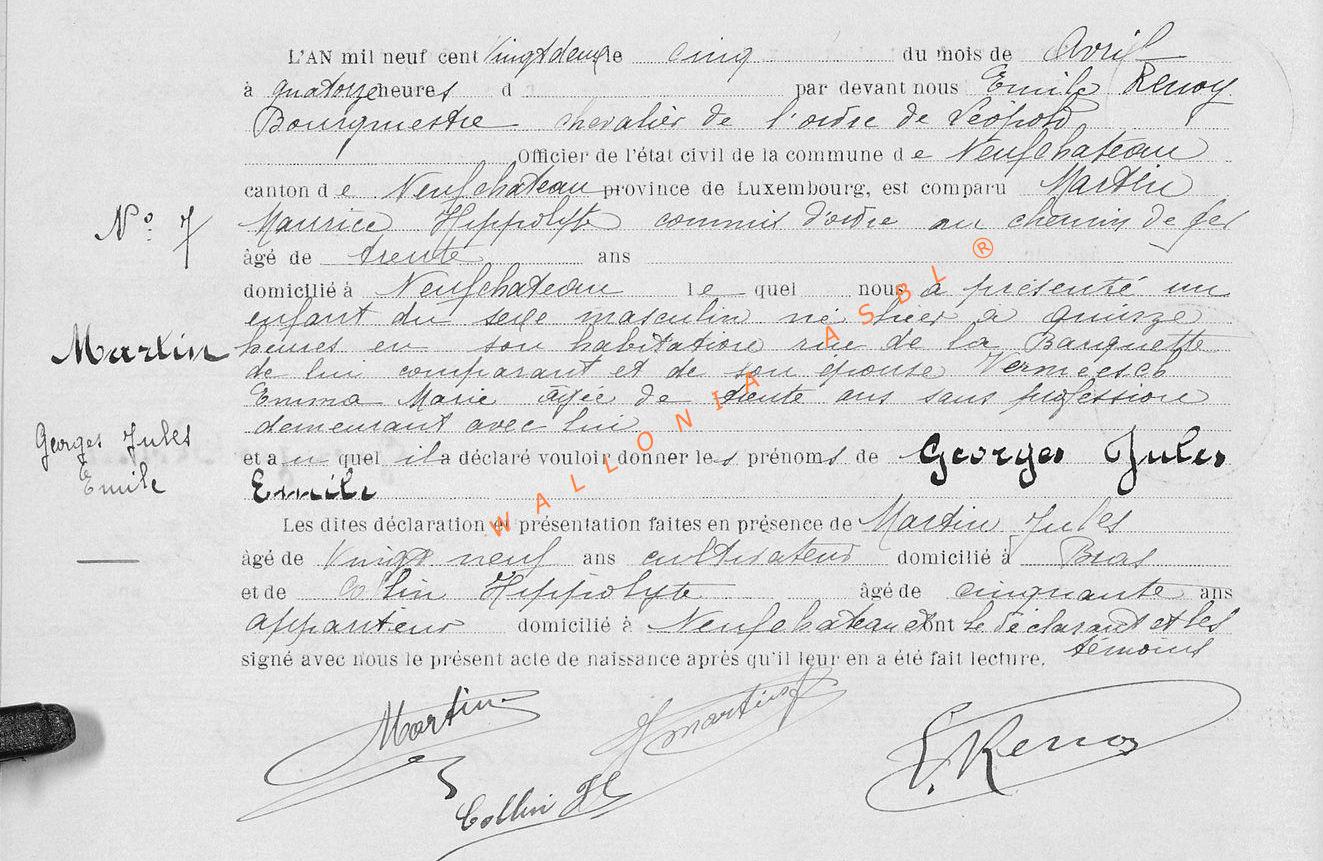 L'AN mil neuf cent Vingt deux le cinq du mois de Avril
à quatorze heures d par devant nous Emile Renoy
Bourgmestre chevalier de l'ordre de Léopold
Officier de l'état civil de la commune de Neufchateau
canton de Neufchateau province de Luxembourg, est comparu Martin
N° 7
Maurice Hippolyte commis d'ordre au chemin de fer
âgé de trente ans
domicilié à Neufchateau le quel nous a présenté un
enfant du sexe masculin né hier à quinze
Martin
heures en son habitation rue de la Banquette
de lui comparant et de son épouse Vermeesch
Emma Marie âgée de trente ans sans profession
demeurant avec lui
Georges Jules
Emile
et au quel il a déclaré vouloir donner les prénoms de Georges Jules
Emile
Les dites déclaration et présentation faites en présence de Martin Jules
âgé de Vingt neuf ans cultivateur domicilié à Bras
et de Collin Hippolyte âgé de cinquante ans
appariteur domicilié à Neufchateau et ont le déclarant et les
témoins
signé avec nous le présent acte de naissance après qu'il leur en a été fait lecture.
Martin
J Martin
E. Renoy
Collin H
WALLONIA ASBL ®